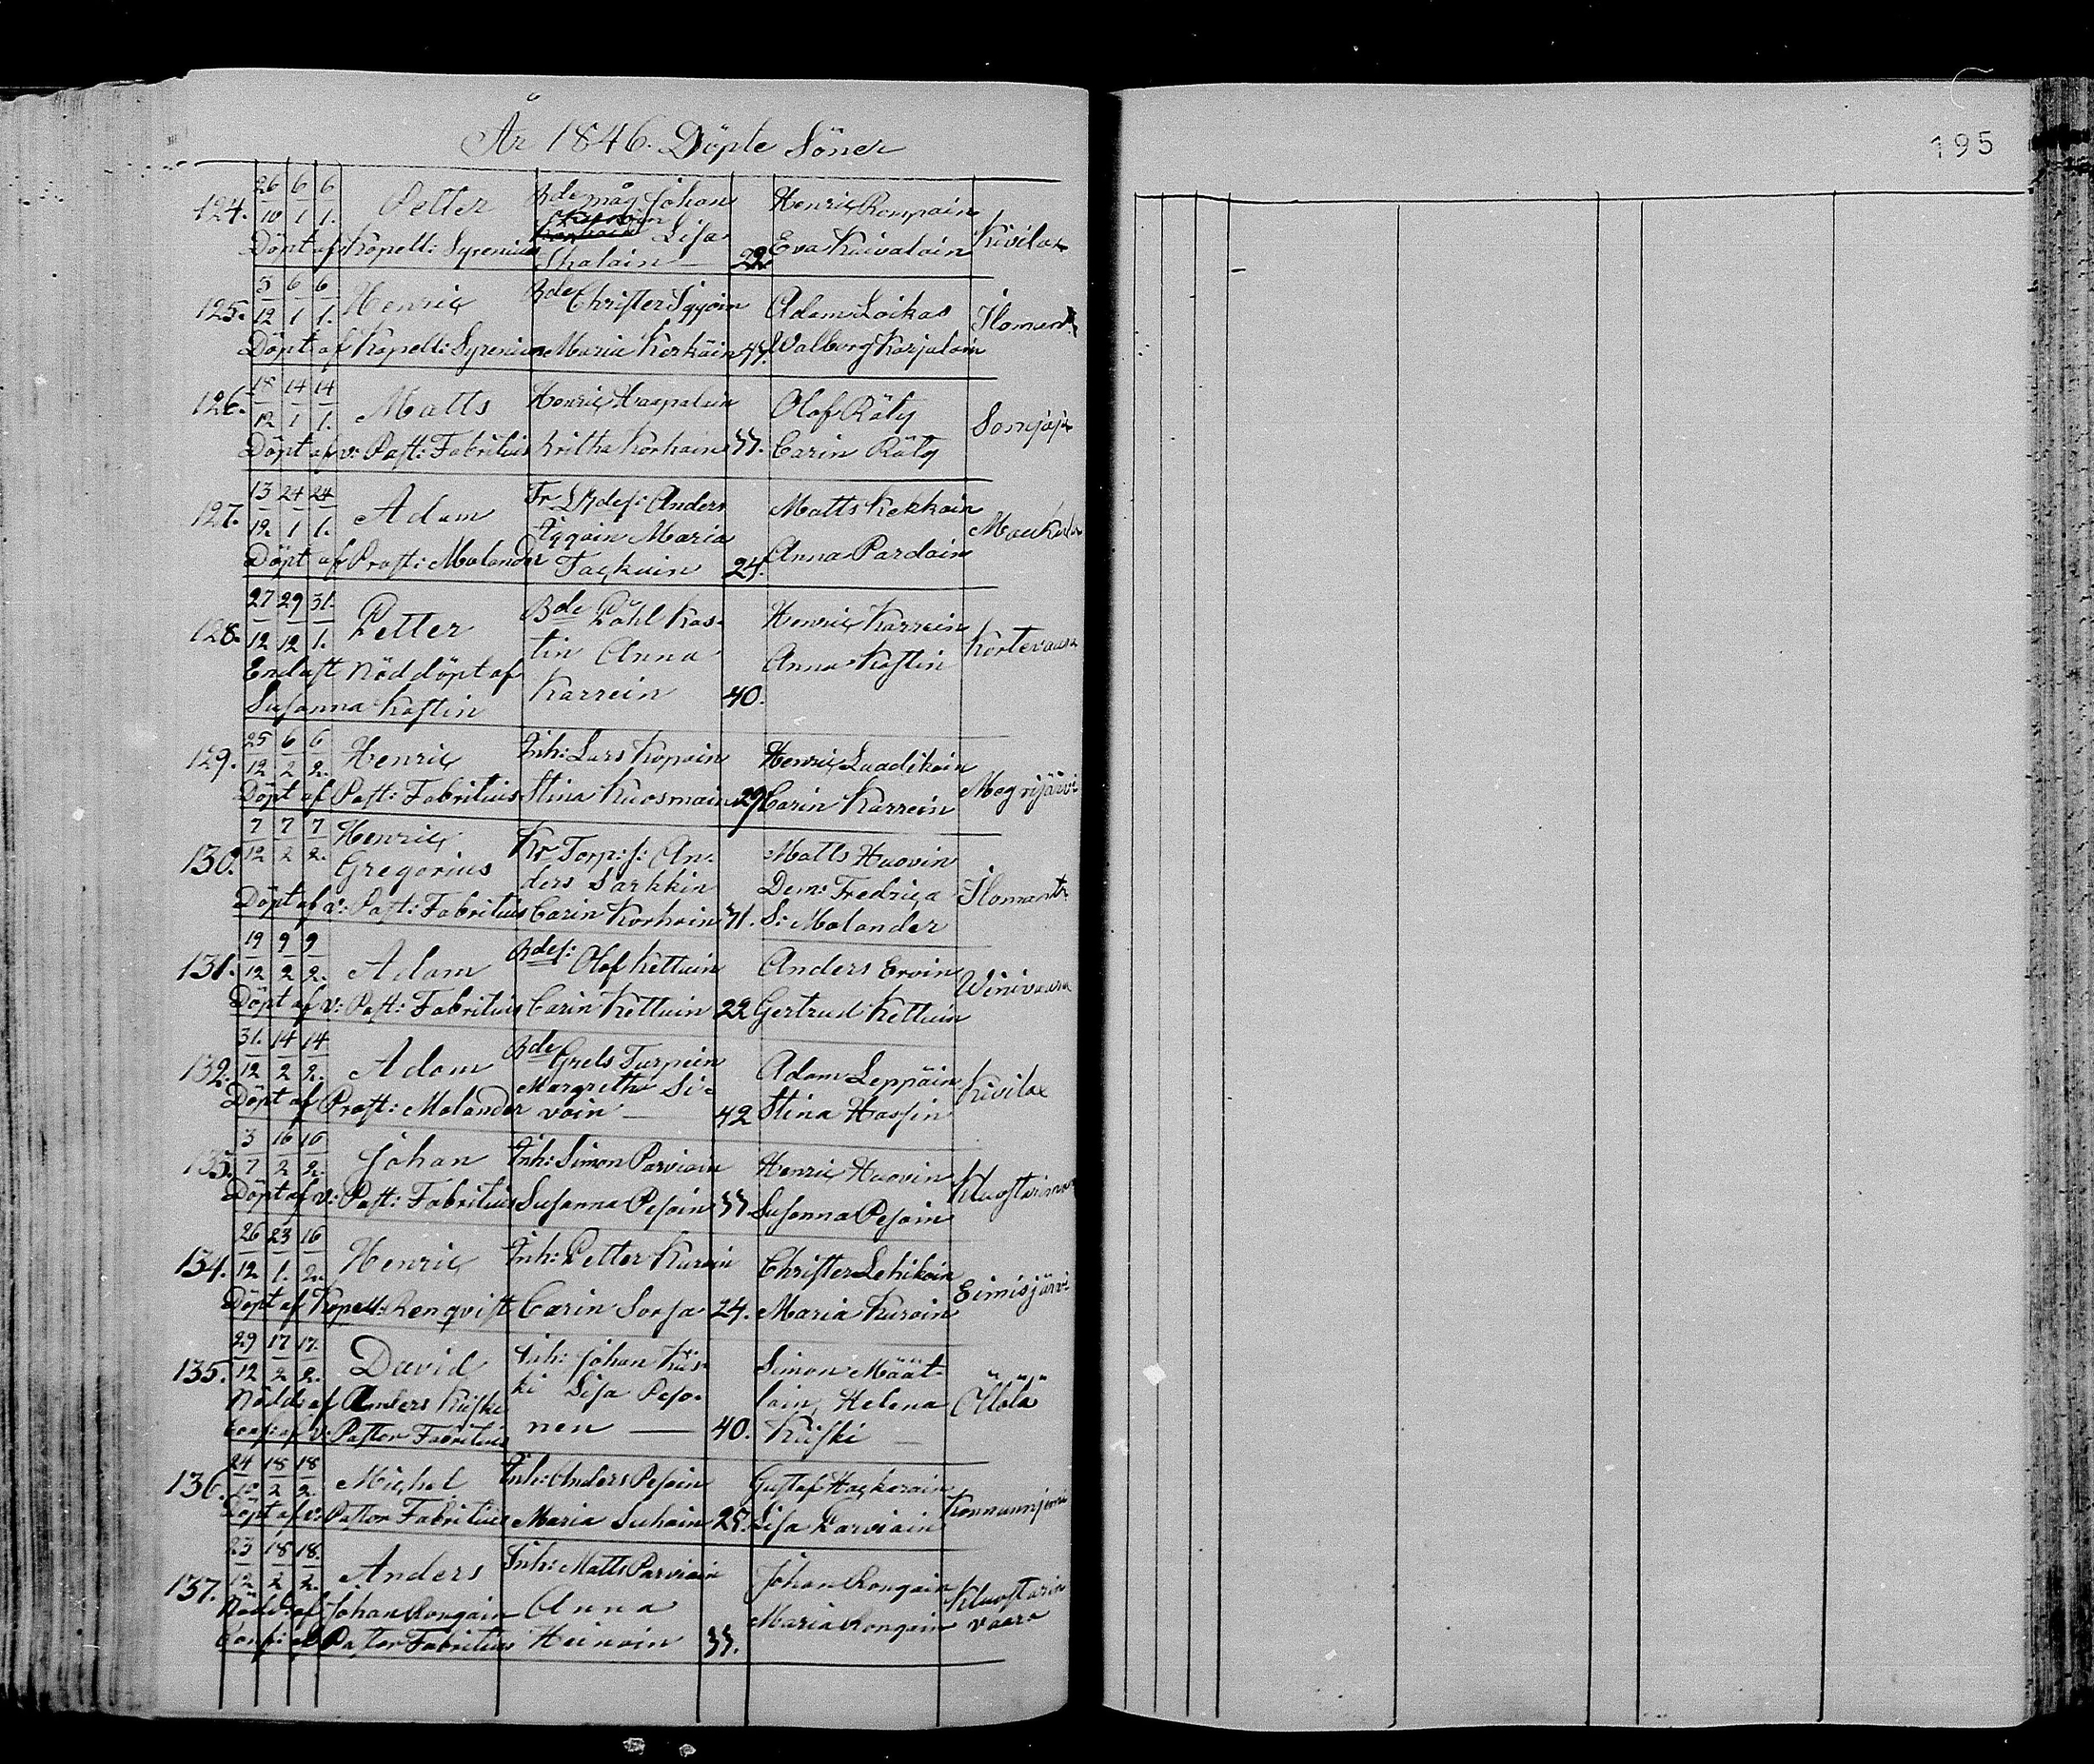 År 1846. Döpte Söner
195
124. 26/10 6/1 6/1. Petter Bdemåg Johan Henric Rompain Kivilax
Lisa
Döpt af Kapell: Syrenius Skalain — 22. Eva Kuivalain
125. 3/12 6/1 6/1. Henric Bde Christer Iggoin Adam Loikas Ilomants
Döpt af Kapell: Syrenius Maria Kerkäin 44. Walborg Karjalain
126. 18/12 14/1 14/1. Matts Henric Haapalain Olof Räty Sonjoja
Döpt af v: Past: Fabritius Britha Korhoin 33. Carin Räty
127. 13/12. 24/1 24/1. Adam Fr LBdes: Anders Matts Kekkoin Moukola
Iggoin Maria Anna Pardain
Döpt af Prost: Molander Tackuin 24.
128. 27/12 29/12 31/1. Petter Bde Påhl Kos- Henric Karrein Kortevaara
tin Anna Anna Kostin
Endast Nöddöpt af Karrein 40.
Susanna Kostin
129. 25/12 6/2 6/2. Henric Inh: Lars Kopoin Henric Laadikain Megrijärvi
Döpt af Past: Fabritius Stina Kuosmain 29 Carin Karrein
130. 7/12 7/2 7/2. Henric Kr Torp: s: An- Matts Huovin Ilomants
Gregorius ders Sarkkin Dem: Fredrica
Döpt af v: Past: Fabritius Carin Korhoin 31. S: Molander
131. 19/12 9/2 9/2. Adam Bdes: Olof Kettuin Anders Ervin Winivaara
Döpt af v: Past: Fabritius Carin Kettuin 22 Gertrud Kettuin
132. 31./12 14/2 14/2. Adam Bde Grels Turpein Adam Leppäin Kivilax
Margretha Si-
Döpt af Prost: Molander voin — 42 Stina Hassin
133. 3/7 16/2 16/2. Johan Inh: Simon Parviain Henric Huovin
Döpt af v: Past: Fabritius Susanna Pesoin 33. Susanna Pesoin
134. 26/12. 23/1. 16/2. Henric Inh: Petter Kuroin Christer Lehikoin Eimisjärvi
Döpt af Kapell: Renqvist Carin Sorsa 24. Maria Kuroin
135. 29/12 17/2 17/2. David Inh: Johan Kiis- Simon Määt- Ällölä
ki Lisa Peso- tain, Helena
Nödd: af Anders Kiiski nen — 40. Kiiski —
Conf: af v: Pastor Fabritius
136. 24/12 18/2 18/2. Michel Inh: Anders Pesoin Gustaf Hackarain Konnunjärvi
Döpt af v: Pastor Fabritius Maria Suhoin 25. Lisa Parviain
137. 23/12. 18/2 18/2. Anders Inh: Matts Parviain Johan Rongain Kluostarin
Nödd: af Johan Rongain Anna Maria Rongain vaara
Conf: af Pastor Fabritius Heinoin 33.